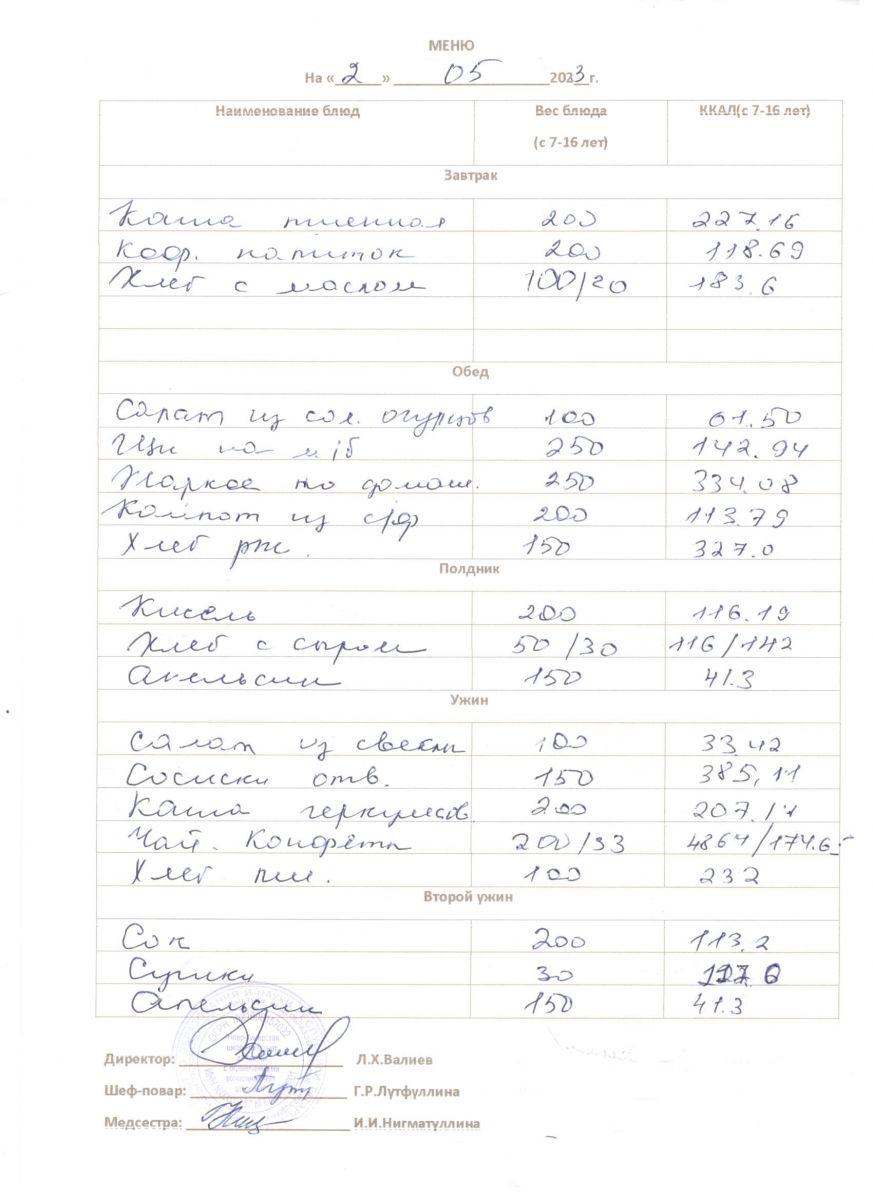 МЕНЮ
На « 2 » 05 2023 г.
Наименование блюд Вес блюда (с 7-16 лет) ККАЛ(с 7-16 лет)
Завтрак
Каша пшенная 200 227.16
Коф. напиток 200 118.69
Хлеб с маслом 100/20 183.6
Обед
Салат из сол. огурцов 100 61.50
Щи на м/б 250 142.94
Жаркое по домаш. 250 334.08
Компот из с/ф 200 113.79
Хлеб рж. 150 327.0
Полдник
Кисель 200 116.19
Хлеб с сыром 50/30 116/142
Апельсин 150 41.3
Ужин
Салат из свеклы 100 33.42
Сосиски отв. 150 385,11
Каша геркулесов. 200
Чай. Конфеты 200/33 48.64/174.65
Хлеб пш. 100 232
Второй ужин
Сок 200 113.2
Сушки 30
Апельсин 150 41.3
Директор: Л.Х.Валиев
Шеф-повар: Г.Р.Лутфуллина
Медсестра: И.И.Нигматуллина